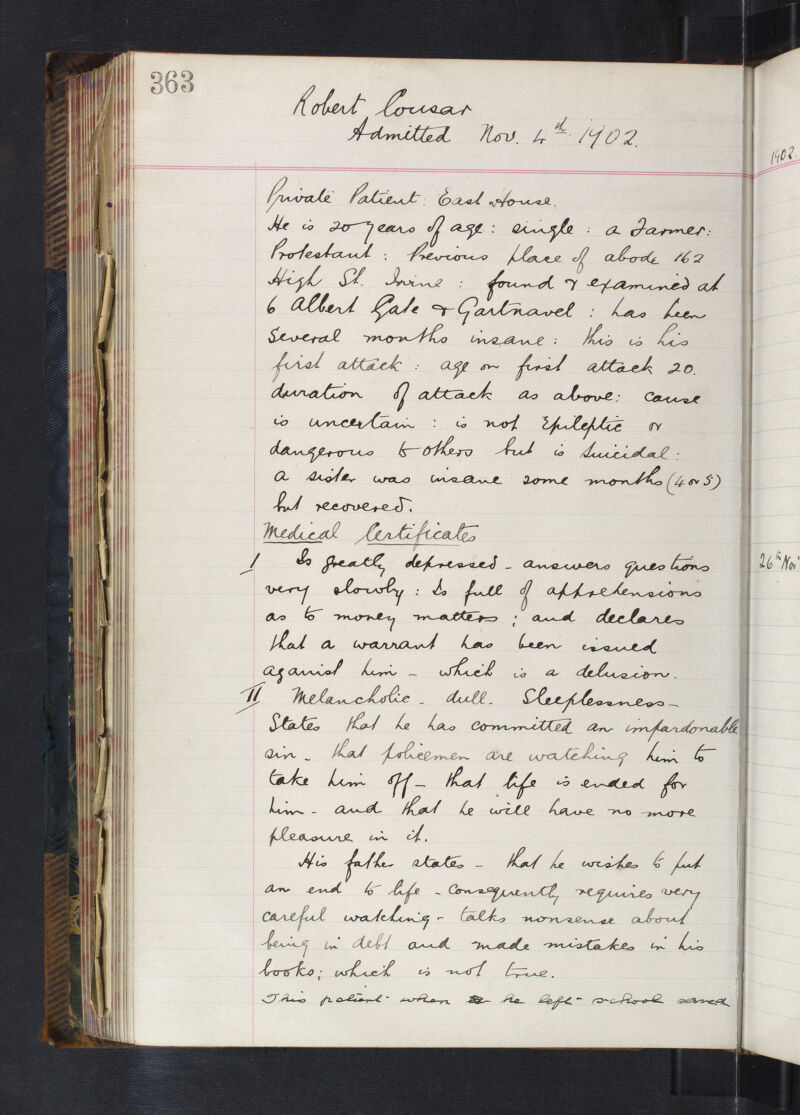 363
Robert Cousar
Admitted Nov. 4th 1902.
1902.
Private Patient: East House.
He is 20 years of age: single: a Farmer:
Protestant: Previous place of abode 162
High St. Irvine: found & examined at
6 Albert Gate & Gartnavel: has been
several months insane: this is his
first attack: age on first attack 20.
duration of attack as above: cause
is uncertain: is not Epileptic or
dangerous to others but is Suicidal:
a sister was insane some months (4 or 5)
but recovered.
Medical Certificates
I Is greatly depressed - answers questions
very slowly: Is full of apprehensions
as to money matters; and declares
that a warrant has been issued
against him - which is a delusion.
II Melancholic - dull. Sleeplessness -
States that he has committed an impardonable
sin - that policemen are watching him to
take him off - that life is ended for
him - and that he will have no more
pleasure in it.
His father states - that he wishes to put
an end to life - consequently requires very
careful watching - talks nonsense about
being in debt and made mistakes in his
books; which is not true.
This patient when he left school served
26th Nov